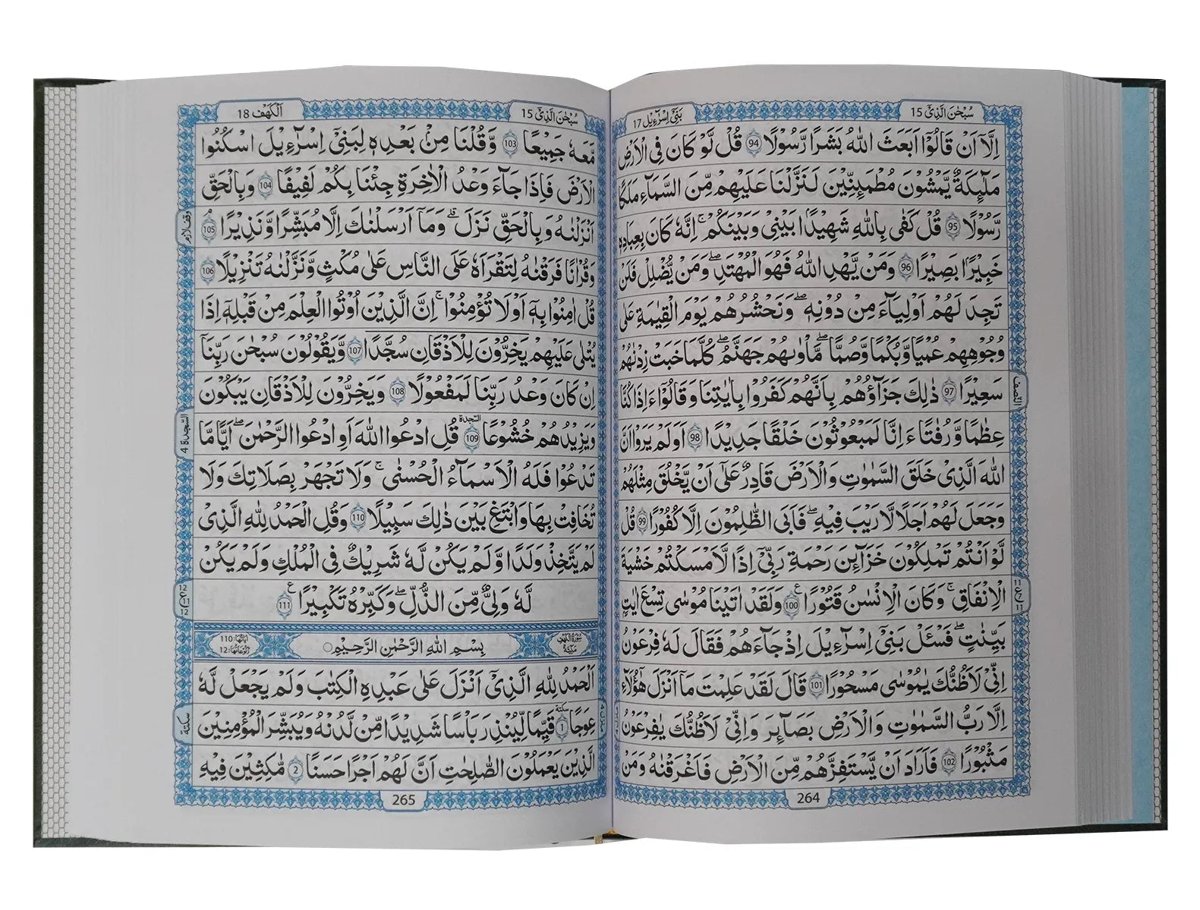 سُبْحٰنَ الَّذِيْٓ 15
بَنِيْٓ اِسْرَآءِيْل 17
اِلَّاۤ اَنْ قَالُوْۤا اَبَعَثَ اللّٰهُ بَشَرًا رَّسُوْلًا 94 قُلْ لَّوْ كَانَ فِي الْاَرْضِ
مَلٰٓئِكَةٌ يَّمْشُوْنَ مُطْمَئِنِّيْنَ لَنَزَّلْنَا عَلَيْهِمْ مِّنَ السَّمَآءِ مَلَكًا
رَّسُوْلًا 95 قُلْ كَفٰى بِاللّٰهِ شَهِيْدًۢا بَيْنِيْ وَبَيْنَكُمْ ؕ اِنَّهٗ كَانَ بِعِبَادِهٖ
خَبِيْرًۢا بَصِيْرًا 96 وَمَنْ يَّهْدِ اللّٰهُ فَهُوَ الْمُهْتَدِ ۚ وَمَنْ يُّضْلِلْ فَلَنْ
تَجِدَ لَهُمْ اَوْلِيَآءَ مِنْ دُوْنِهٖ ؕ وَنَحْشُرُهُمْ يَوْمَ الْقِيٰمَةِ عَلٰى
وُجُوْهِهِمْ عُمْيًا وَّبُكْمًا وَّصُمًّا ؕ مَاْوٰىهُمْ جَهَنَّمُ ؕ كُلَّمَا خَبَتْ زِدْنٰهُمْ
سَعِيْرًا 97 ذٰلِكَ جَزَآؤُهُمْ بِاَنَّهُمْ كَفَرُوْا بِاٰيٰتِنَا وَقَالُوْۤا ءَاِذَا كُنَّا
عِظَامًا وَّرُفَاتًا ءَاِنَّا لَمَبْعُوْثُوْنَ خَلْقًا جَدِيْدًا 98 اَوَلَمْ يَرَوْا اَنَّ
اللّٰهَ الَّذِيْ خَلَقَ السَّمٰوٰتِ وَالْاَرْضَ قَادِرٌ عَلٰٓى اَنْ يَّخْلُقَ مِثْلَهُمْ
وَجَعَلَ لَهُمْ اَجَلًا لَّا رَيْبَ فِيْهِ ؕ فَاَبَى الظّٰلِمُوْنَ اِلَّا كُفُوْرًا 99 قُلْ
لَّوْ اَنْتُمْ تَمْلِكُوْنَ خَزَآئِنَ رَحْمَةِ رَبِّيْۤ اِذًا لَّاَمْسَكْتُمْ خَشْيَةَ
الْاِنْفَاقِ ؕ وَكَانَ الْاِنْسَانُ قَتُوْرًا 100 وَلَقَدْ اٰتَيْنَا مُوْسٰى تِسْعَ اٰيٰتٍۭ
بَيِّنٰتٍ فَسْئَلْ بَنِيْۤ اِسْرَآءِيْلَ اِذْ جَآءَهُمْ فَقَالَ لَهٗ فِرْعَوْنُ
اِنِّيْ لَاَظُنُّكَ يٰمُوْسٰى مَسْحُوْرًا 101 قَالَ لَقَدْ عَلِمْتَ مَاۤ اَنْزَلَ هٰٓؤُلَآءِ
اِلَّا رَبُّ السَّمٰوٰتِ وَالْاَرْضِ بَصَآئِرَ ۚ وَاِنِّيْ لَاَظُنُّكَ يٰفِرْعَوْنُ
مَثْبُوْرًا 102 فَاَرَادَ اَنْ يَّسْتَفِزَّهُمْ مِّنَ الْاَرْضِ فَاَغْرَقْنٰهُ وَمَنْ
264
سُبْحٰنَ الَّذِيْٓ 15
اَلْكَهْف 18
مَّعَهٗ جَمِيْعًا 103 وَّقُلْنَا مِنْۢ بَعْدِهٖ لِبَنِيْۤ اِسْرَآءِيْلَ اسْكُنُوا
الْاَرْضَ فَاِذَا جَآءَ وَعْدُ الْاٰخِرَةِ جِئْنَا بِكُمْ لَفِيْفًا 104 وَبِالْحَقِّ
اَنْزَلْنٰهُ وَبِالْحَقِّ نَزَلَ ؕ وَمَاۤ اَرْسَلْنٰكَ اِلَّا مُبَشِّرًا وَّنَذِيْرًا 105
وَقُرْاٰنًا فَرَقْنٰهُ لِتَقْرَاَهٗ عَلَى النَّاسِ عَلٰى مُكْثٍ وَّنَزَّلْنٰهُ تَنْزِيْلًا 106
قُلْ اٰمِنُوْا بِهٖۤ اَوْ لَا تُؤْمِنُوْا ؕ اِنَّ الَّذِيْنَ اُوْتُوا الْعِلْمَ مِنْ قَبْلِهٖۤ اِذَا
يُتْلٰى عَلَيْهِمْ يَخِرُّوْنَ لِلْاَذْقَانِ سُجَّدًا 107 وَّيَقُوْلُوْنَ سُبْحٰنَ رَبِّنَاۤ
اِنْ كَانَ وَعْدُ رَبِّنَا لَمَفْعُوْلًا 108 وَيَخِرُّوْنَ لِلْاَذْقَانِ يَبْكُوْنَ
وَيَزِيْدُهُمْ خُشُوْعًا السجدة 109 قُلِ ادْعُوا اللّٰهَ اَوِ ادْعُوا الرَّحْمٰنَ ؕ اَيًّا مَّا
تَدْعُوْا فَلَهُ الْاَسْمَآءُ الْحُسْنٰى ۚ وَلَا تَجْهَرْ بِصَلَاتِكَ وَلَا
تُخَافِتْ بِهَا وَابْتَغِ بَيْنَ ذٰلِكَ سَبِيْلًا 110 وَقُلِ الْحَمْدُ لِلّٰهِ الَّذِيْ
لَمْ يَتَّخِذْ وَلَدًا وَّلَمْ يَكُنْ لَّهٗ شَرِيْكٌ فِي الْمُلْكِ وَلَمْ يَكُنْ
لَّهٗ وَلِيٌّ مِّنَ الذُّلِّ وَكَبِّرْهُ تَكْبِيْرًا 111
سُوْرَةُ الْكَهْفِ مَكِّيَّةٌ
بِسْمِ اللّٰهِ الرَّحْمٰنِ الرَّحِيْمِ
اٰيَاتُهَا: 110
رُكُوْعَاتُهَا: 12
اَلْحَمْدُ لِلّٰهِ الَّذِيْۤ اَنْزَلَ عَلٰى عَبْدِهِ الْكِتٰبَ وَلَمْ يَجْعَلْ لَّهٗ
عِوَجًا سكتة 1 قَيِّمًا لِّيُنْذِرَ بَاْسًا شَدِيْدًا مِّنْ لَّدُنْهُ وَيُبَشِّرَ الْمُؤْمِنِيْنَ
الَّذِيْنَ يَعْمَلُوْنَ الصّٰلِحٰتِ اَنَّ لَهُمْ اَجْرًا حَسَنًا 2 مَّاكِثِيْنَ فِيْهِ
265
وقف لازم
السجدة 4
سكتة